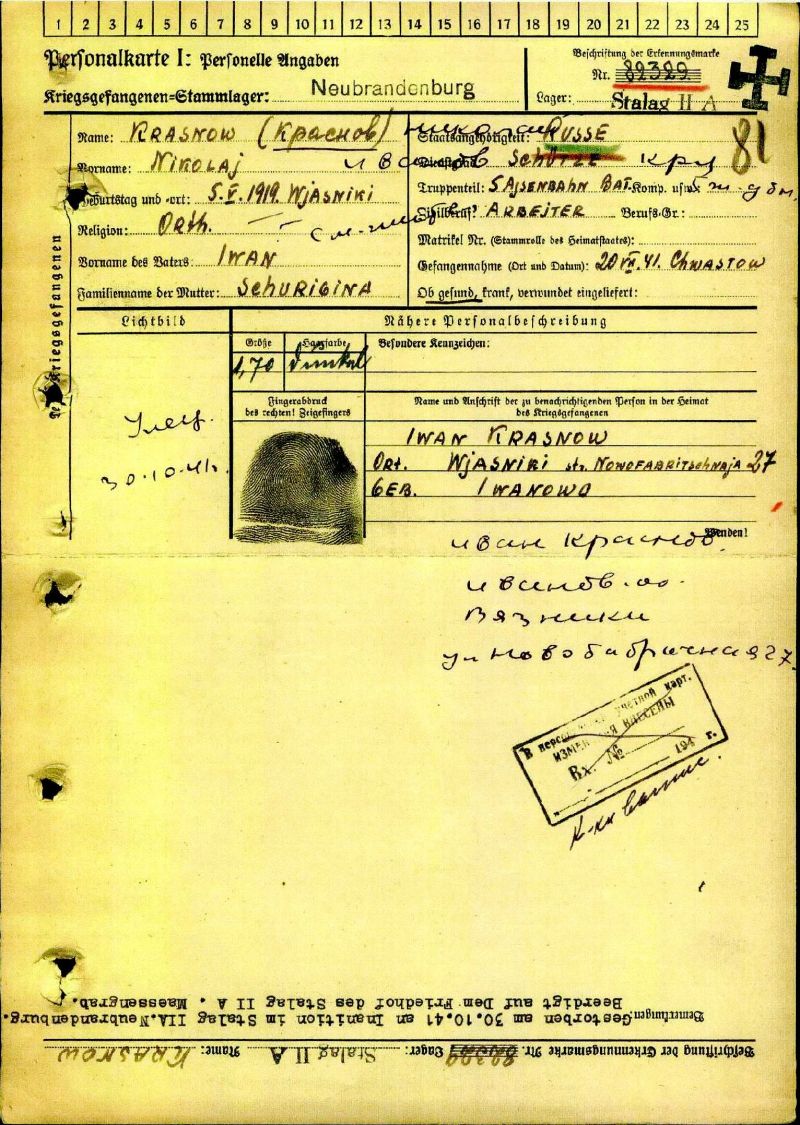 1 2 3 4 5 6 7 8 9 10 11 12 13 14 15 16 17 18 19 20 21 22 23 24 25
Personalkarte I: Personelle Angaben
Kriegsgefangenen=Stammlager: Neubrandenburg
Beschriftung der Erkennungsmarke
Nr. 82329
Lager: Stalag II A
81
Name: KRASNOW (Краснов) Николай
Vorname: NIKOLAJ
Иванов
Geburtstag und -ort: 5.V.1919. WJASNIKI
Religion: ORTH.
Vorname des Vaters: IWAN
Familienname der Mutter: SCHURIGINA
Staatsangehörigkeit: RUSSE
Dienstgrad: SCHÜTZE кр
Truppenteil: 5 AJSENBAHN BAT. Komp. usw.
Zivilberuf: ARBEITER Berufs-Gr.:
Matrikel Nr. (Stammrolle des Heimatstaates):
Gefangennahme (Ort und Datum): 20 VII.41. CHWASTOW
Ob gesund, krank, verwundet eingeliefert:
des Kriegsgefangenen
Lichtbild
Nähere Personalbeschreibung
Größe
Haarfarbe
Besondere Kennzeichen:
1,70
Dunkel
Fingerabdruck
des rechten! Zeigefingers
Name und Anschrift der zu benachrichtigenden Person in der Heimat
des Kriegsgefangenen
30.10.41г.
IWAN KRASNOW
ORT. WJASNIKI str. NOWOFABRITSCHNAJA 27
GEB. IWANOWO
Wenden!
Иван Краснов.
Иванов. об.
Вязники
ул Новофабричная 27.
В персональн. учетной карт.
ИЗМЕНЕНИЯ ВНЕСЕНЫ
Вх. №
194 г.
Bemerkungen: Gestorben am 30.10.41 an Inanition im Stalag IIA.Neubrandenburg.
Beerdigt auf Dem Friedhof des Stalag II A . Maessengrab.
Beschriftung der Erkennungsmarke Nr. 82329 Lager: Stalag II A Name: KRASNOW